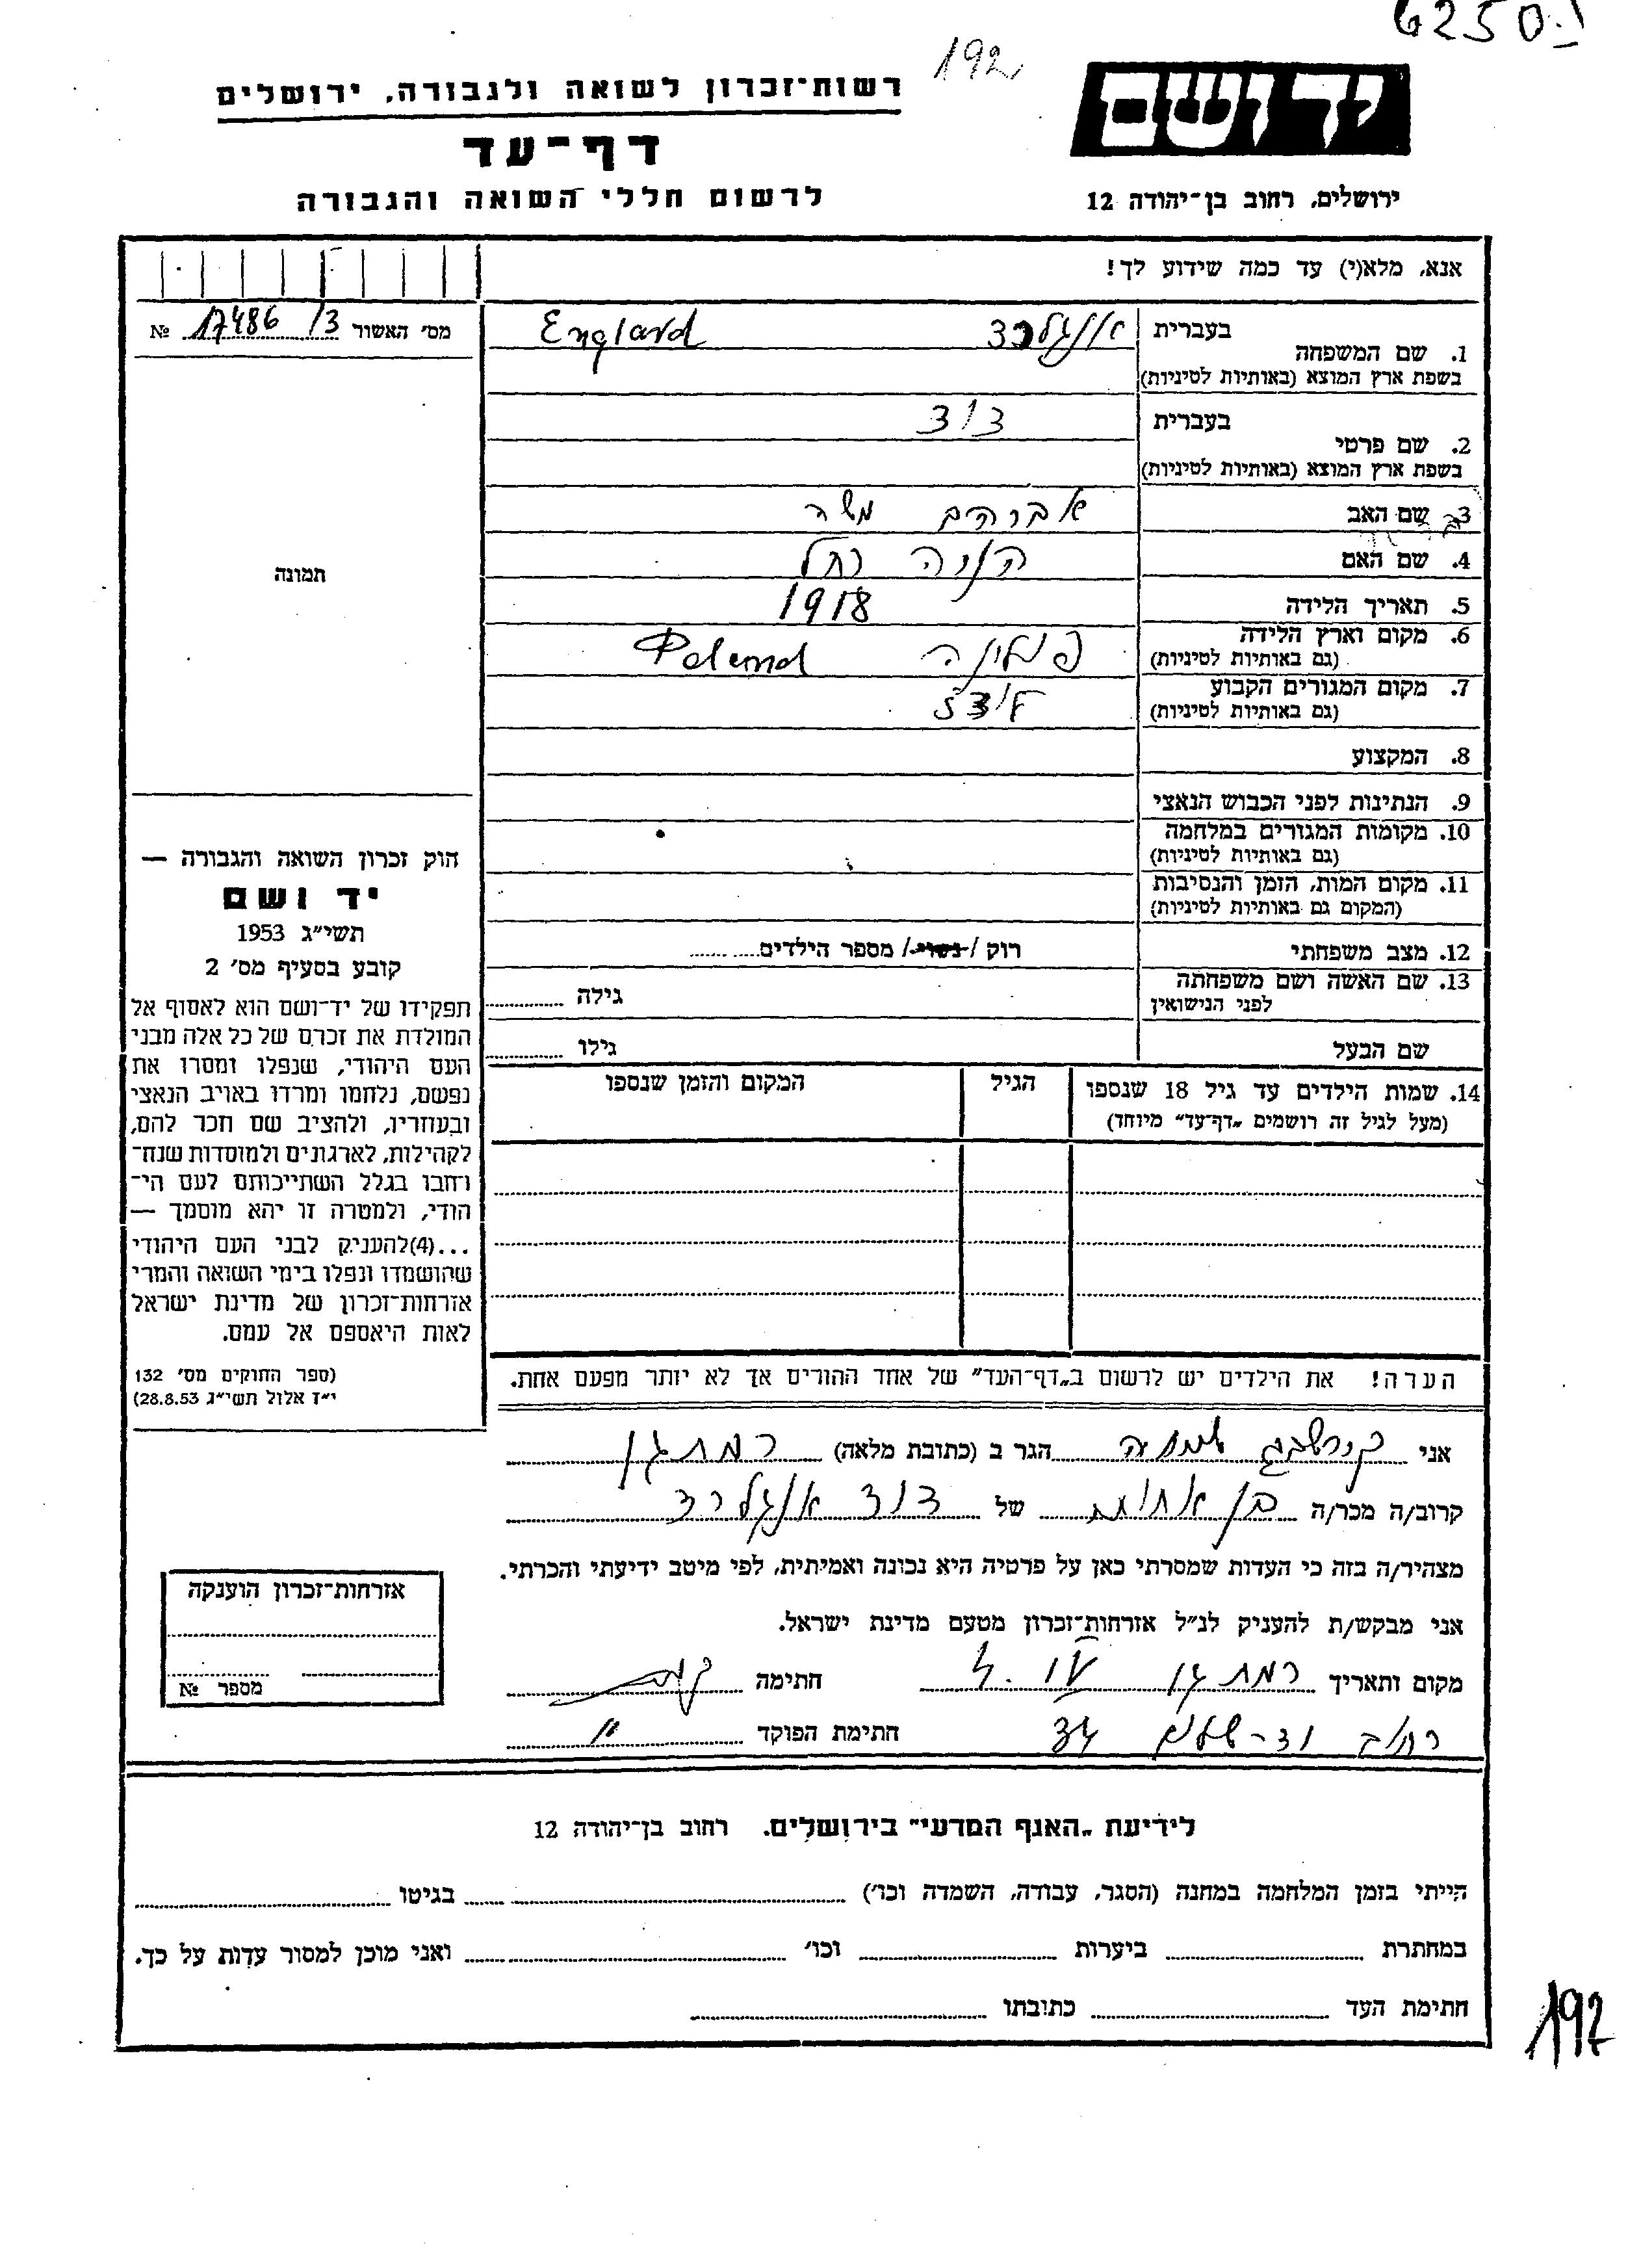 6250
192
רשות־זכרון לשואה ולגבורה, ירושלים
יד ושם
דף־עד
לרשום חללי השואה והגבורה
ירושלים, רחוב בן־יהודה 12
אנא, מלא(י) עד כמה שידוע לך!
מס׳ האשור 17486 /3 №
1. שם המשפחה בעברית אנגלרד England
בשפת ארץ המוצא (באותיות לטיניות)
2. שם פרטי בעברית דוד
בשפת ארץ המוצא (באותיות לטיניות)
3. שם האב אברהם משה
4. שם האם חנה רחל
5. תאריך הלידה 1918
6. מקום וארץ הלידה פולין Poland
(גם באותיות לטיניות)
7. מקום המגורים הקבוע לודז
(גם באותיות לטיניות)
8. המקצוע
9. הנתינות לפני הכבוש הנאצי
10. מקומות המגורים במלחמה
(גם באותיות לטיניות)
11. מקום המות, הזמן והנסיבות
(המקום גם באותיות לטיניות)
12. מצב משפחתי רוק / נשוי / מספר הילדים
13. שם האשה ושם משפחתה גילה
לפני הנישואין
שם הבעל גילו
14. שמות הילדים עד גיל 18 שנספו הגיל המקום והזמן שנספו
(מעל לגיל זה רושמים „דף־עד״ מיוחד)
הערה! את הילדים יש לרשום ב„דף־העד״ של אחד ההורים אך לא יותר מפעם אחת.
תמונה
חוק זכרון השואה והגבורה —
יד ושם
תשי״ג 1953
קובע בסעיף מס׳ 2
תפקידו של יד־ושם הוא לאסוף אל
המולדת את זכרם של כל אלה מבני
העם היהודי, שנפלו ומסרו את
נפשם, נלחמו ומרדו באויב הנאצי
ובעוזריו, ולהציב שם וזכר להם,
לקהילות, לארגונים ולמוסדות שנח־
רחבו בגלל השתייכותם לעם הי־
הודי, ולמטרה זו יהא מוסמך —
...(4)להעניק לבני העם היהודי
שהושמדו ונפלו בימי השואה והמרי
אזרחות־זכרון של מדינת ישראל
לאות היאספם אל עמם.
(ספר החוקים מס׳ 132
י״ז אלול תשי״ג 28.8.53)
אני הגר ב (כתובת מלאה) רמת גן
קרוב/ה מכר/ה בן אחות של דוד אנגלרד
מצהיר/ה בזה כי העדות שמסרתי כאן על פרטיה היא נכונה ואמיתית, לפי מיטב ידיעתי והכרתי.
אני מבקש/ת להעניק לנ״ל אזרחות־זכרון מטעם מדינת ישראל.
מקום ותאריך רמת גן חתימה
רחוב 34 חתימת הפוקד
אזרחות־זכרון הוענקה
מספר №
לידיעת „האגף המדעי״ בירושלים. רחוב בן־יהודה 12
הייתי בזמן המלחמה במחנה (הסגר, עבודה, השמדה וכו׳) בגיטו
במחתרת ביערות וכו׳ ואני מוכן למסור עדות על כך.
חתימת העד כתובתו
192